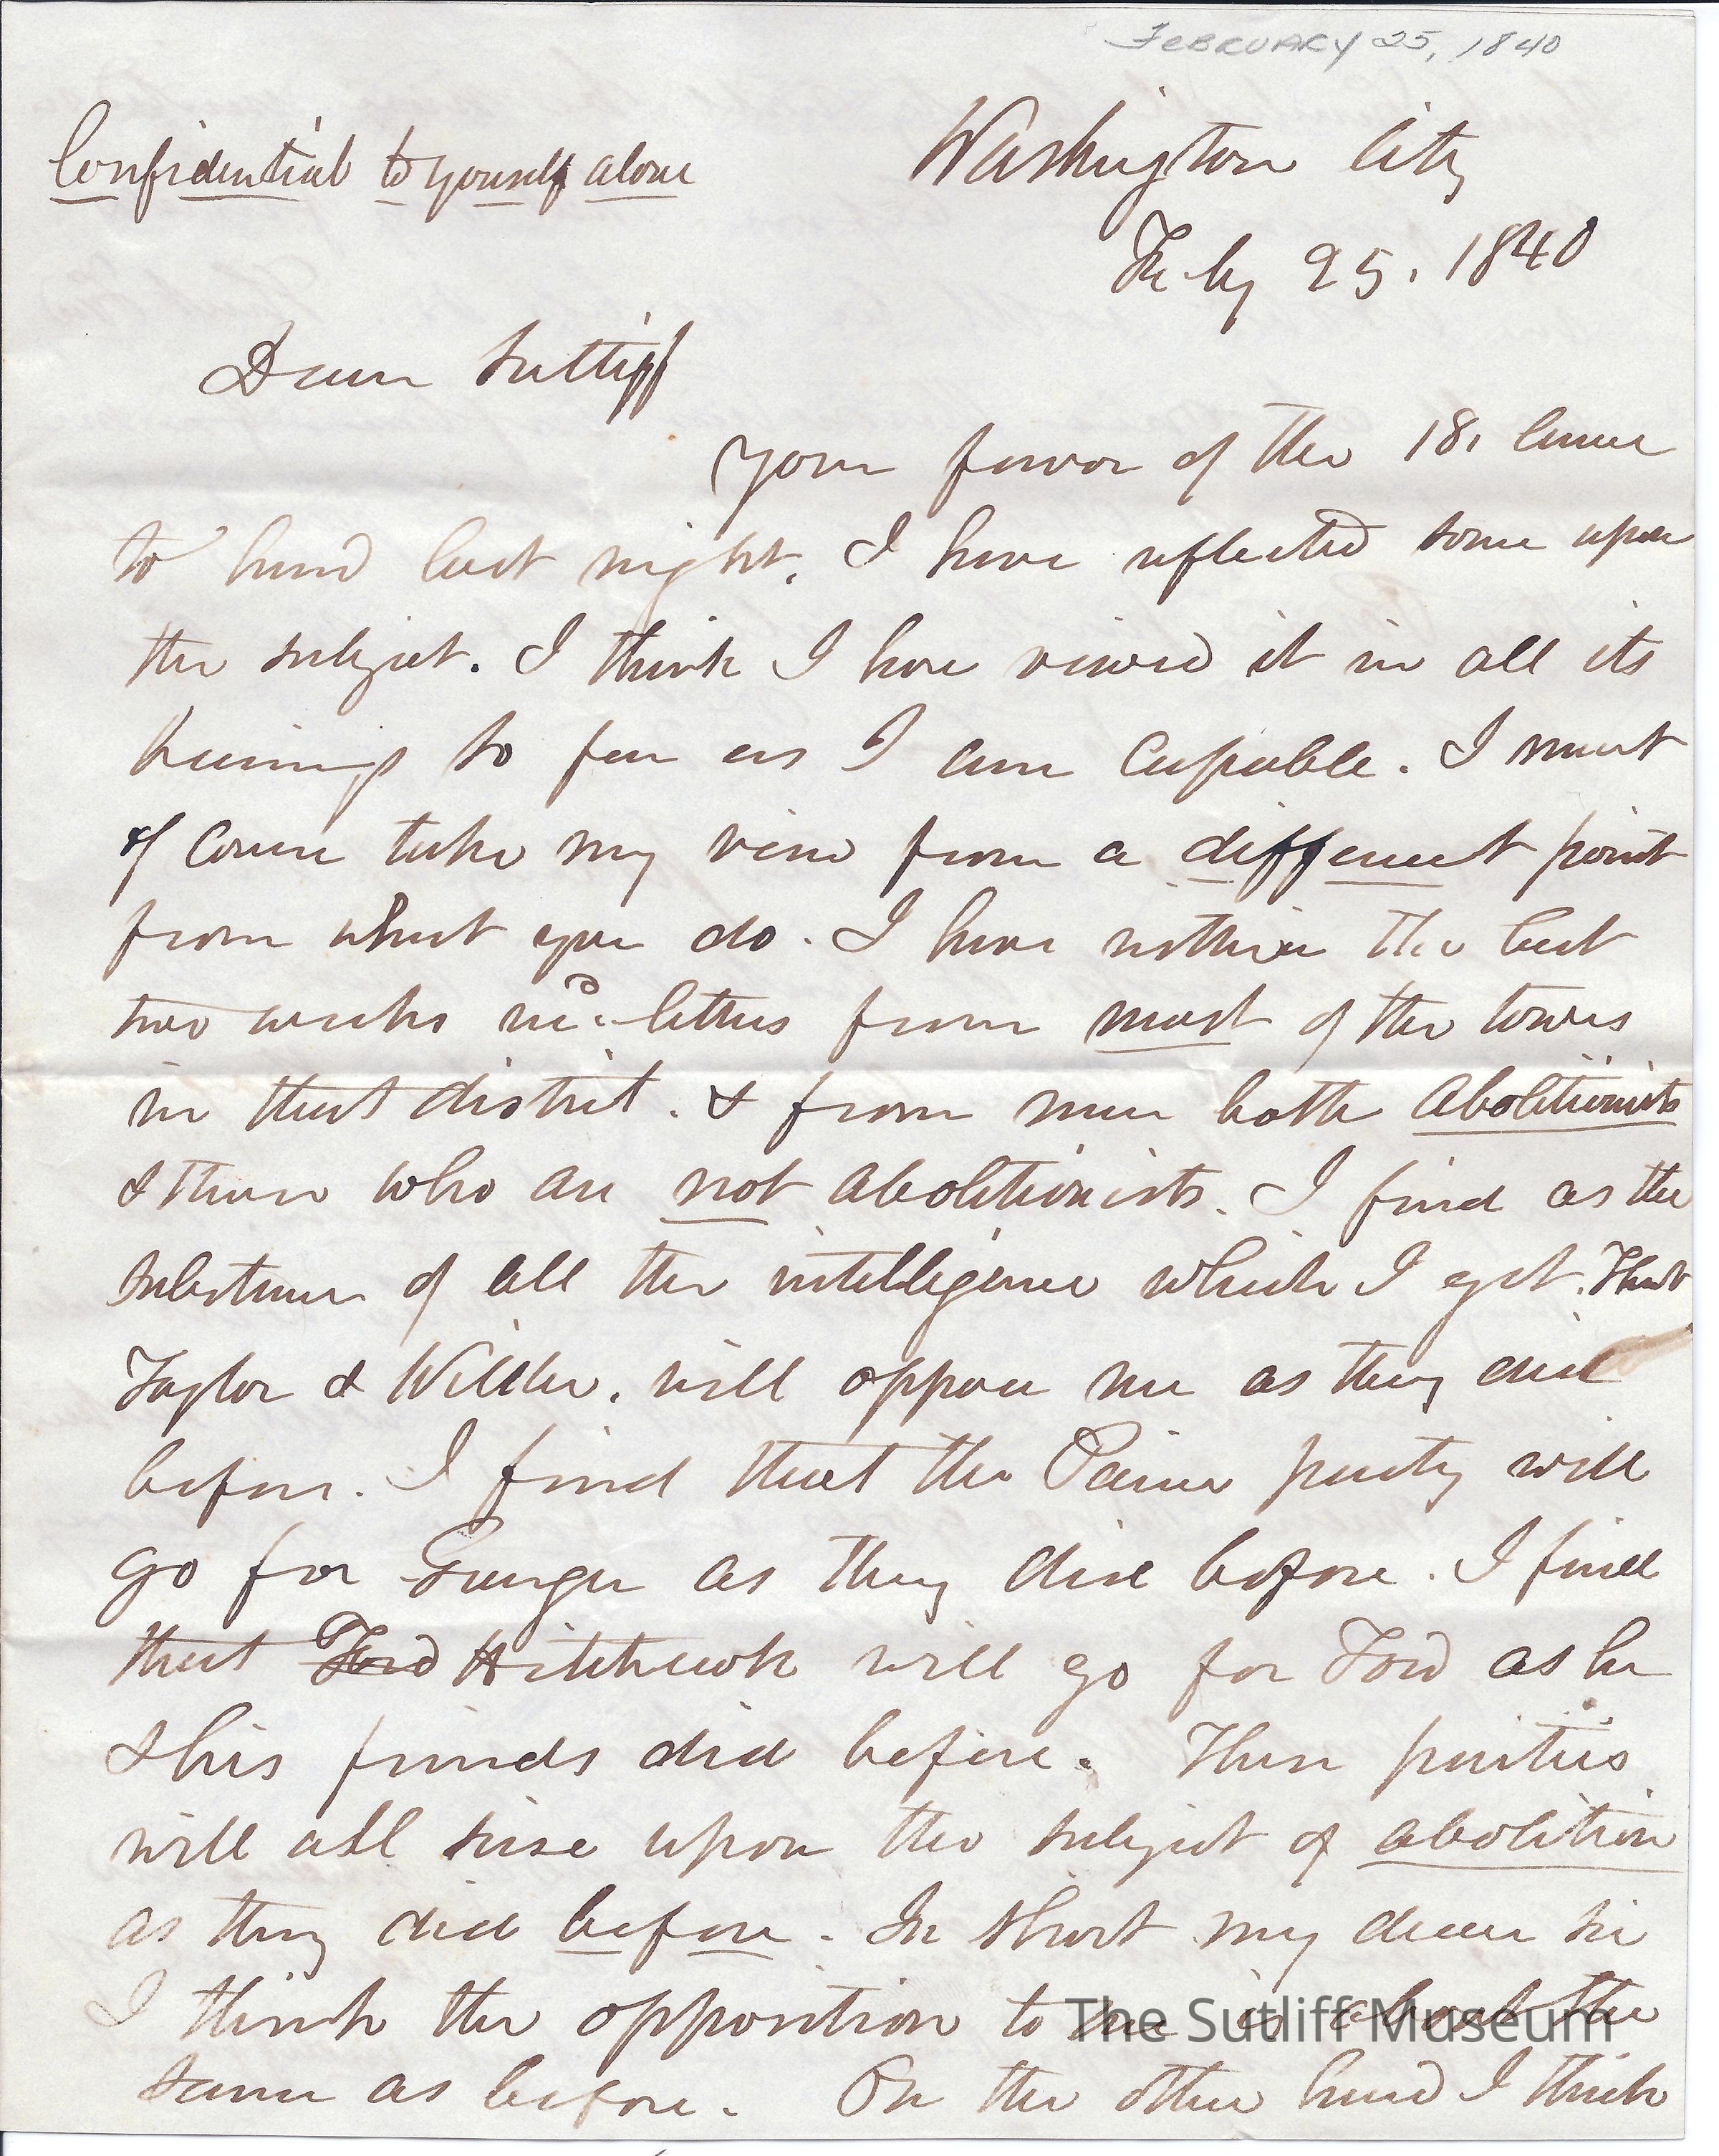 FEBRUARY 25, 1840
Confidential to yourself alone
Washington City
Feby 25. 1840
Dear Sutliff
Your favor of the 18. came
to hand last night. I have reflected some upon
the subject. I think I have viewed it in all its
bearings so far as I am capable. I must
of course take my view from a different point
from what you do. I have within the last
two weeks recd letters from most of the towns
in that district. & from men both abolitionists
& those who are not abolitionists. I find as the
substance of all the intelligence which I get. That
Taylor & will oppose me as they did
before. I find that the party will
go for as they did before. I find
that Ford Hitchcock will go for Ford as he
& his friends did before. These parties
will all seise upon the subject of abolition
as they did before. In short my dear sir
I think the opposition to me is about the
same as before. On the other hand I think
The Sutliff Museum